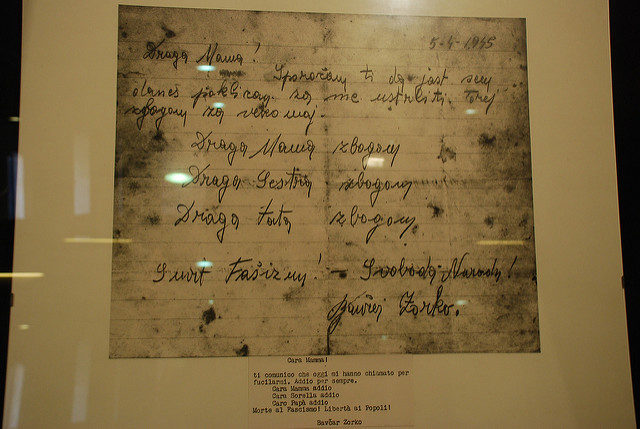 5-4-1945
Draga Mama!
Sporočam ti da jast sem
danes poklican za me ustrliti. Torej
zbogom za vekomaj.
Draga Mama zbogom
Draga Sestra zbogom
Draga Tata zbogom
Smrt Fašizmu! - Svoboda Narodu!
Zorko.
Cara Mamma!
ti comunico che oggi mi hanno chiamato per
fucilarmi. Addio per sempre.
Cara Mamma addio
Cara Sorella addio
Caro Papà addio
Morte al Fascismo! Libertà ai Popoli!
Bavčar Zorko